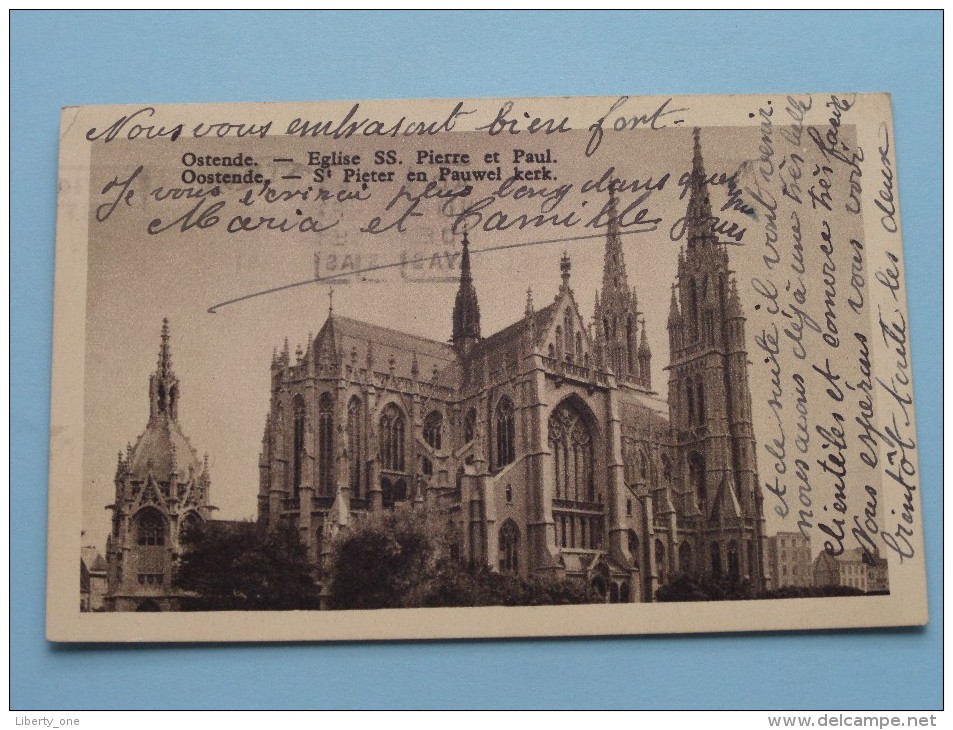 Nous vous embrasont bien fort
Ostende. — Eglise SS. Pierre et Paul.
Oostende. — St Pieter en Pauwel kerk.
Je vous écrirai plus long dans quelque
Maria et Camille jours
et de suite il vont venir.
nous avons déjà une très belle
clientèles et comerce très
Nous espérons vous voir
bintôt toute les deux
Liberty_one
www.delcampe.net